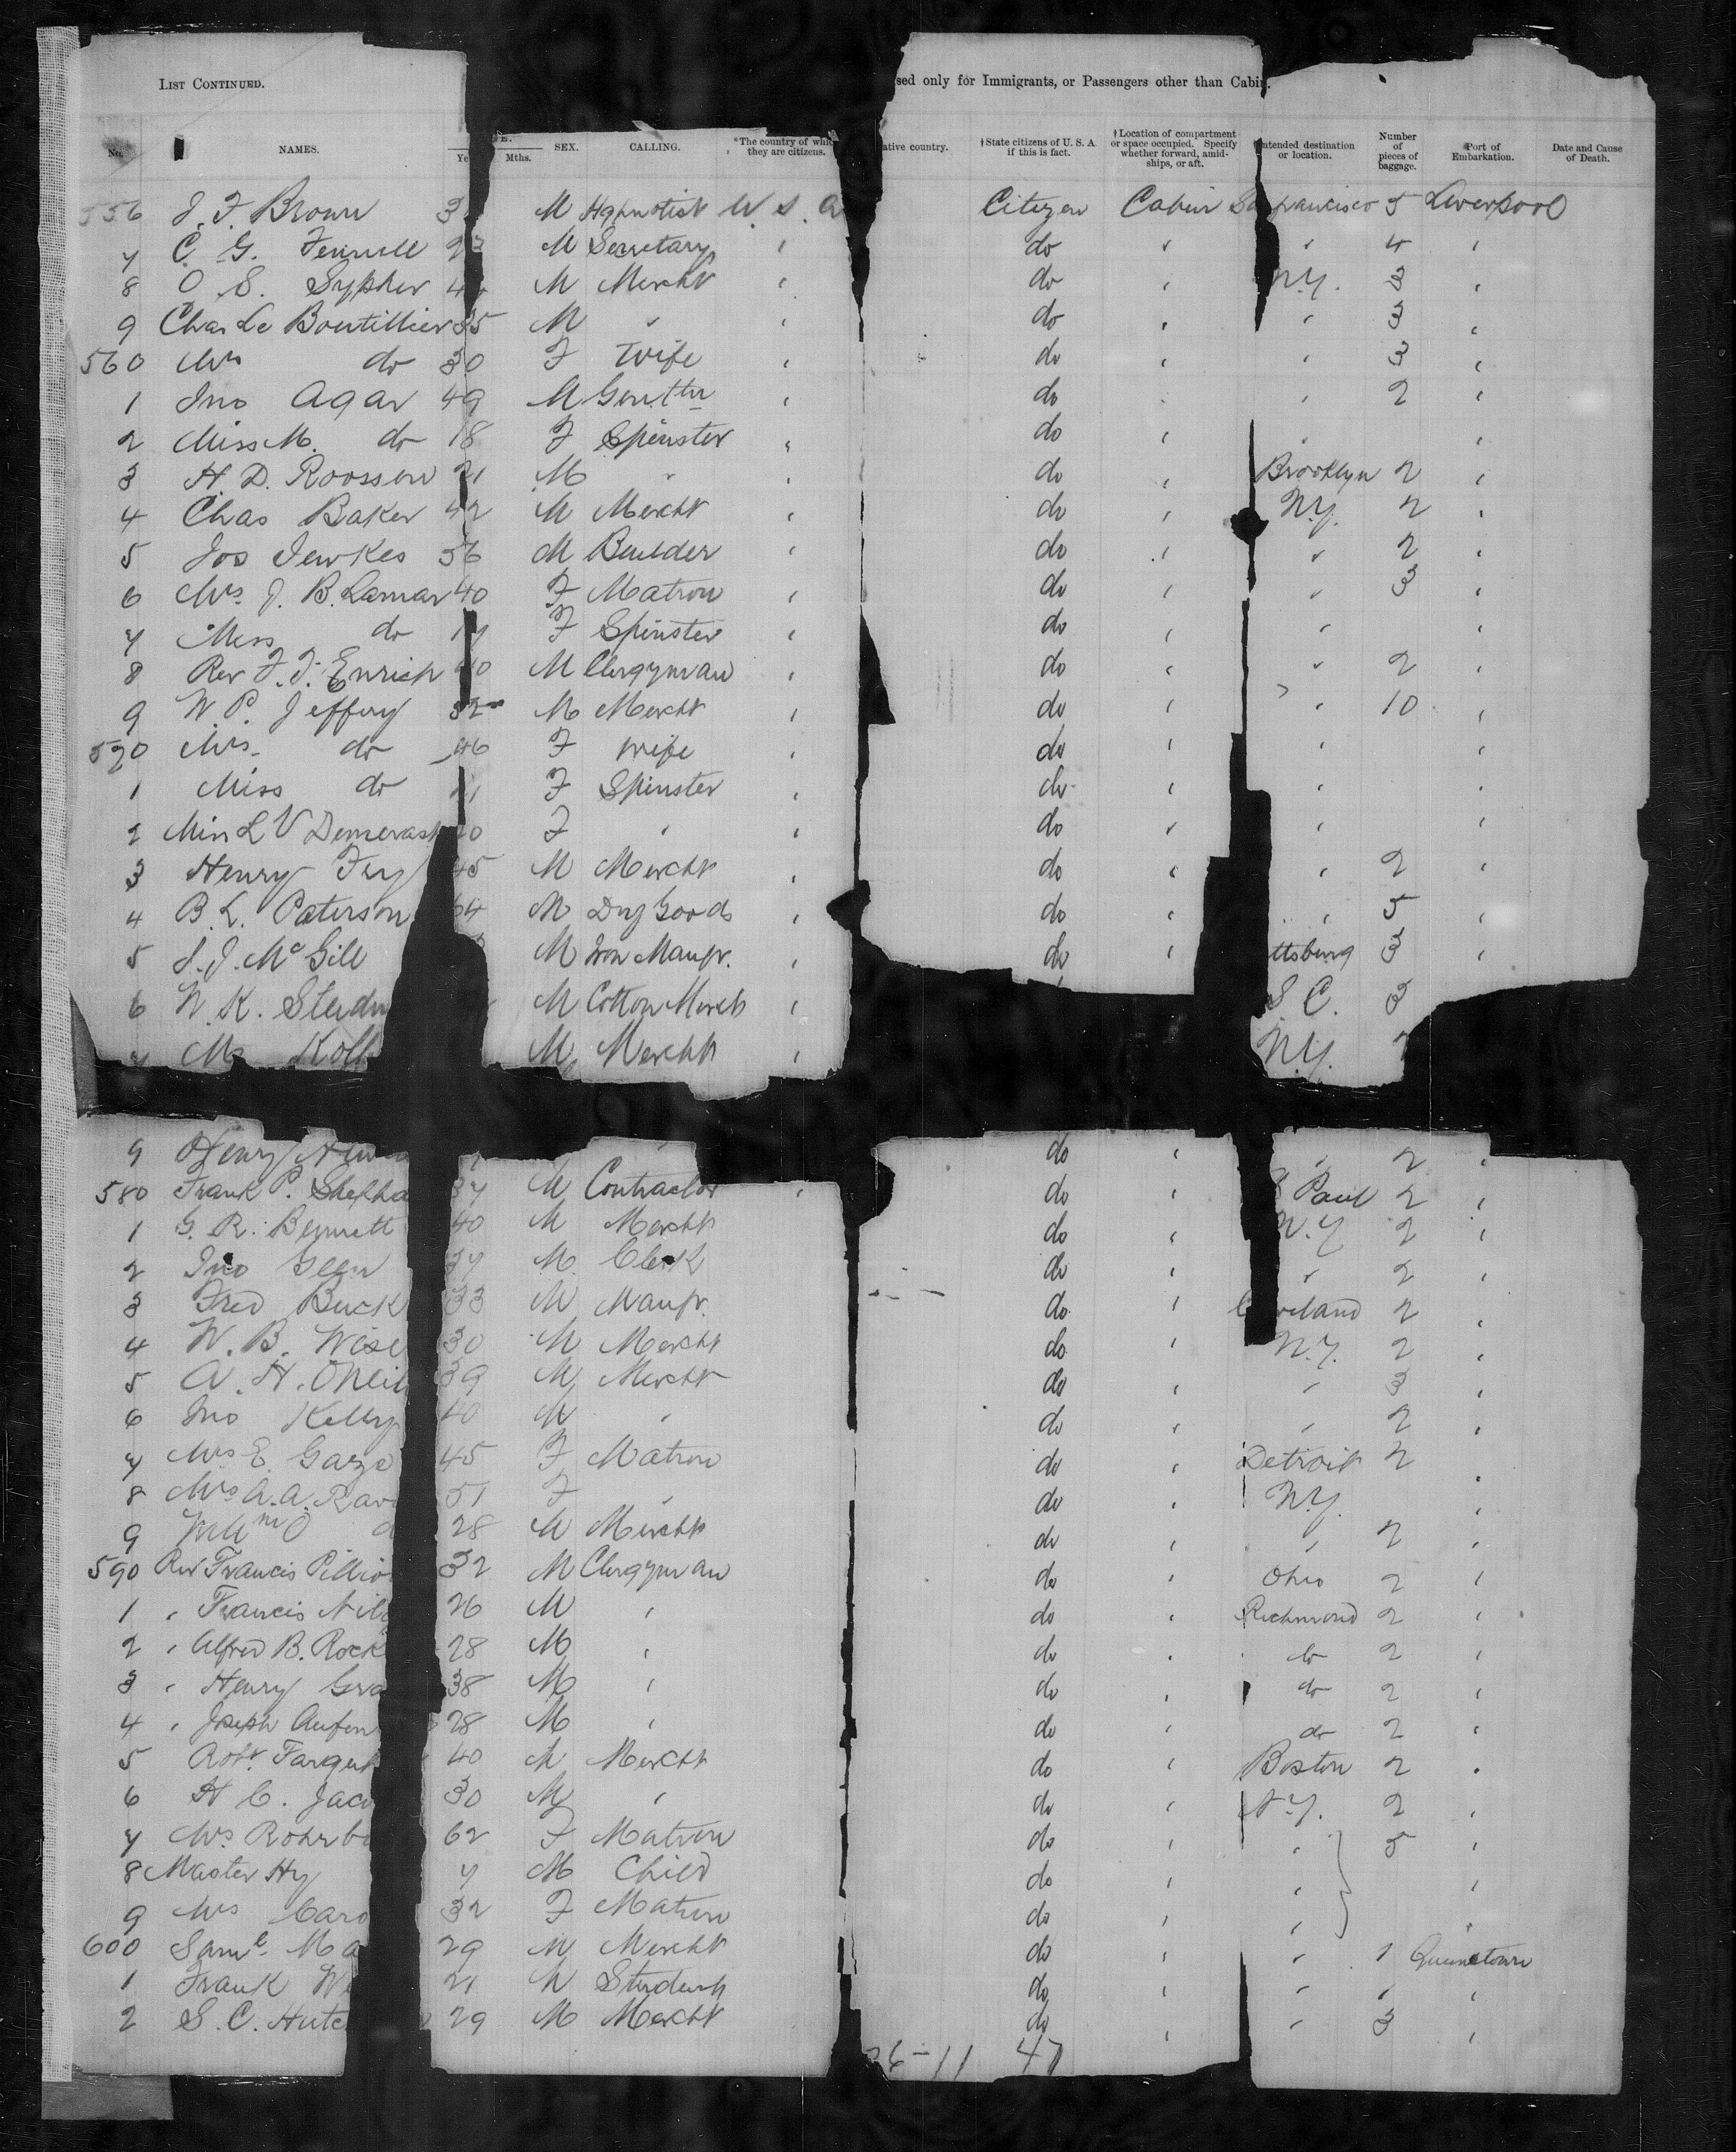 LIST CONTINUED. sed only for Immigrants, or Passengers other than Cabin.
No. NAMES. Ye E. Mths. SEX. CALLING. *The country of whic they are citizens. ative country. †State citizens of U. S. A. if this is fact. †Location of compartment or space occupied. Specify whether forward, amidships, or aft. Intended destination or location. Number of pieces of baggage. Port of Embarkation. Date and Cause of Death.
556 J. F. Brown 3 M Hypnotist U. S. A Citizen Cabin Sanfrancisco 5 Liverpool
7 C. G. M Secretary " do " " 4 "
8 O. S. Sypher 4 M Mercht " do " N.Y. 3 "
9 Chas Le Boutillier 35 M " " do " " 3 "
560 Mrs do 30 F Wife " do " " 3 "
1 Jno Agar 49 M Gentln " do " 2 "
2 Miss M. do 18 F Spinster " do " " "
3 H. D. Roosson 21 M " " do " Brooklyn 2 "
4 Chas Baker 42 M Mercht " do " N.Y. 2 "
5 Jos Jewkes 56 M Builder " do " " 2 "
6 Mrs. J. B. Lamar 40 F Matron " do " " 3 "
7 Miss do 17 F Spinster " do " " "
8 Rev F. J. 40 M Clergyman " do " " 2 "
9 W. P. Jeffery 52 M Mercht " do " " 10 "
570 Mrs. do 46 F Wife " do " " "
1 Miss do F Spinster " do " " "
2 Miss L V Demerast 20 F " " do " " "
3 Henry 45 M Mercht " do " " 2 "
4 B. L. Paterson 64 M Dry Goods " do " " 5 "
5 J. J. McGill M Iron Manfr. " do " ttsburg 3 "
6 W. K. Stedm M Cotton Merch " S. C. 3
7 M Kolb M Mercht " N.Y.
9 Henry do " " 2 "
580 Frank P. Shepha 37 M Contractor " do " S Paul 2 "
1 G. R. Bennett 40 M Mercht do " N.Y 2 "
2 Jno Glen 37 M Clerk do " " 2 "
3 Fred Buck 33 M Manfr. do " C veland 2 "
4 W. B. Wise 30 M Mercht do " N.Y. 2 "
5 A. H. ONeil 39 M Mercht do " " 3 "
6 Jno Kelly 40 M " do " " 2 "
7 Mrs E. Garze 45 F Matron do " Detroit 2 "
8 Mrs A. A. Rav 51 F " do " N.Y. "
9 Willm O d 28 M Mercht do " " 2 "
590 Rev Francis Pillio 32 M Clergyman do " Ohio 2 "
1 " Francis 26 M " do " Richmond 2 "
2 " Alfred B. Rock 28 M " do " do 2 "
3 " Henry Gra 38 M " do " do 2 "
4 " Joseph Aufen 28 M " do " do 2 "
5 Robt. Farquh 40 M Mercht do " Boston 2 "
6 H C. Jaco 30 M " do " N.Y. 2 "
7 Mrs. Rohrba 62 F Matron do " " 5 "
8 Master Hy 7 M Child do " " "
9 Mrs Caro 32 F Matron do " " "
600 Saml. Ma 29 M Mercht do " " 1 Queenstown
1 Frank W 21 M Student do " " " "
2 S. C. Hutc 29 M Mercht do " " 3 "
26-11 47